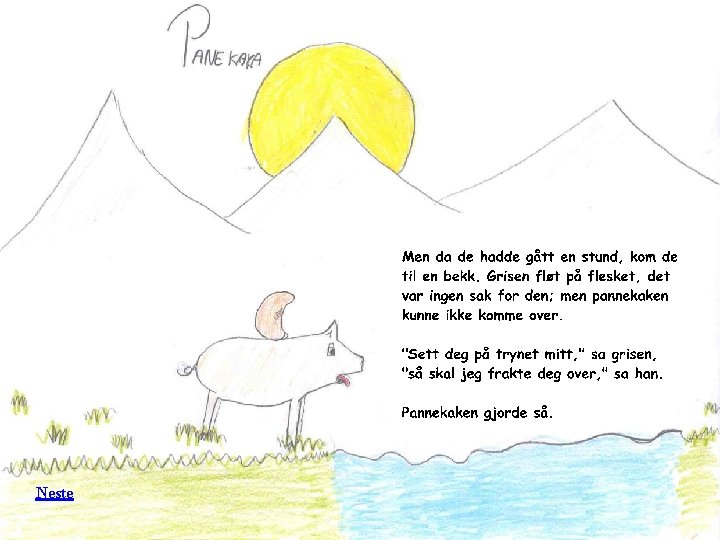 PANEKAKA
Men da de hadde gått en stund, kom de
til en bekk. Grisen fløt på flesket, det
var ingen sak for den; men pannekaken
kunne ikke komme over.
"Sett deg på trynet mitt," sa grisen,
"så skal jeg frakte deg over," sa han.
Pannekaken gjorde så.
Neste